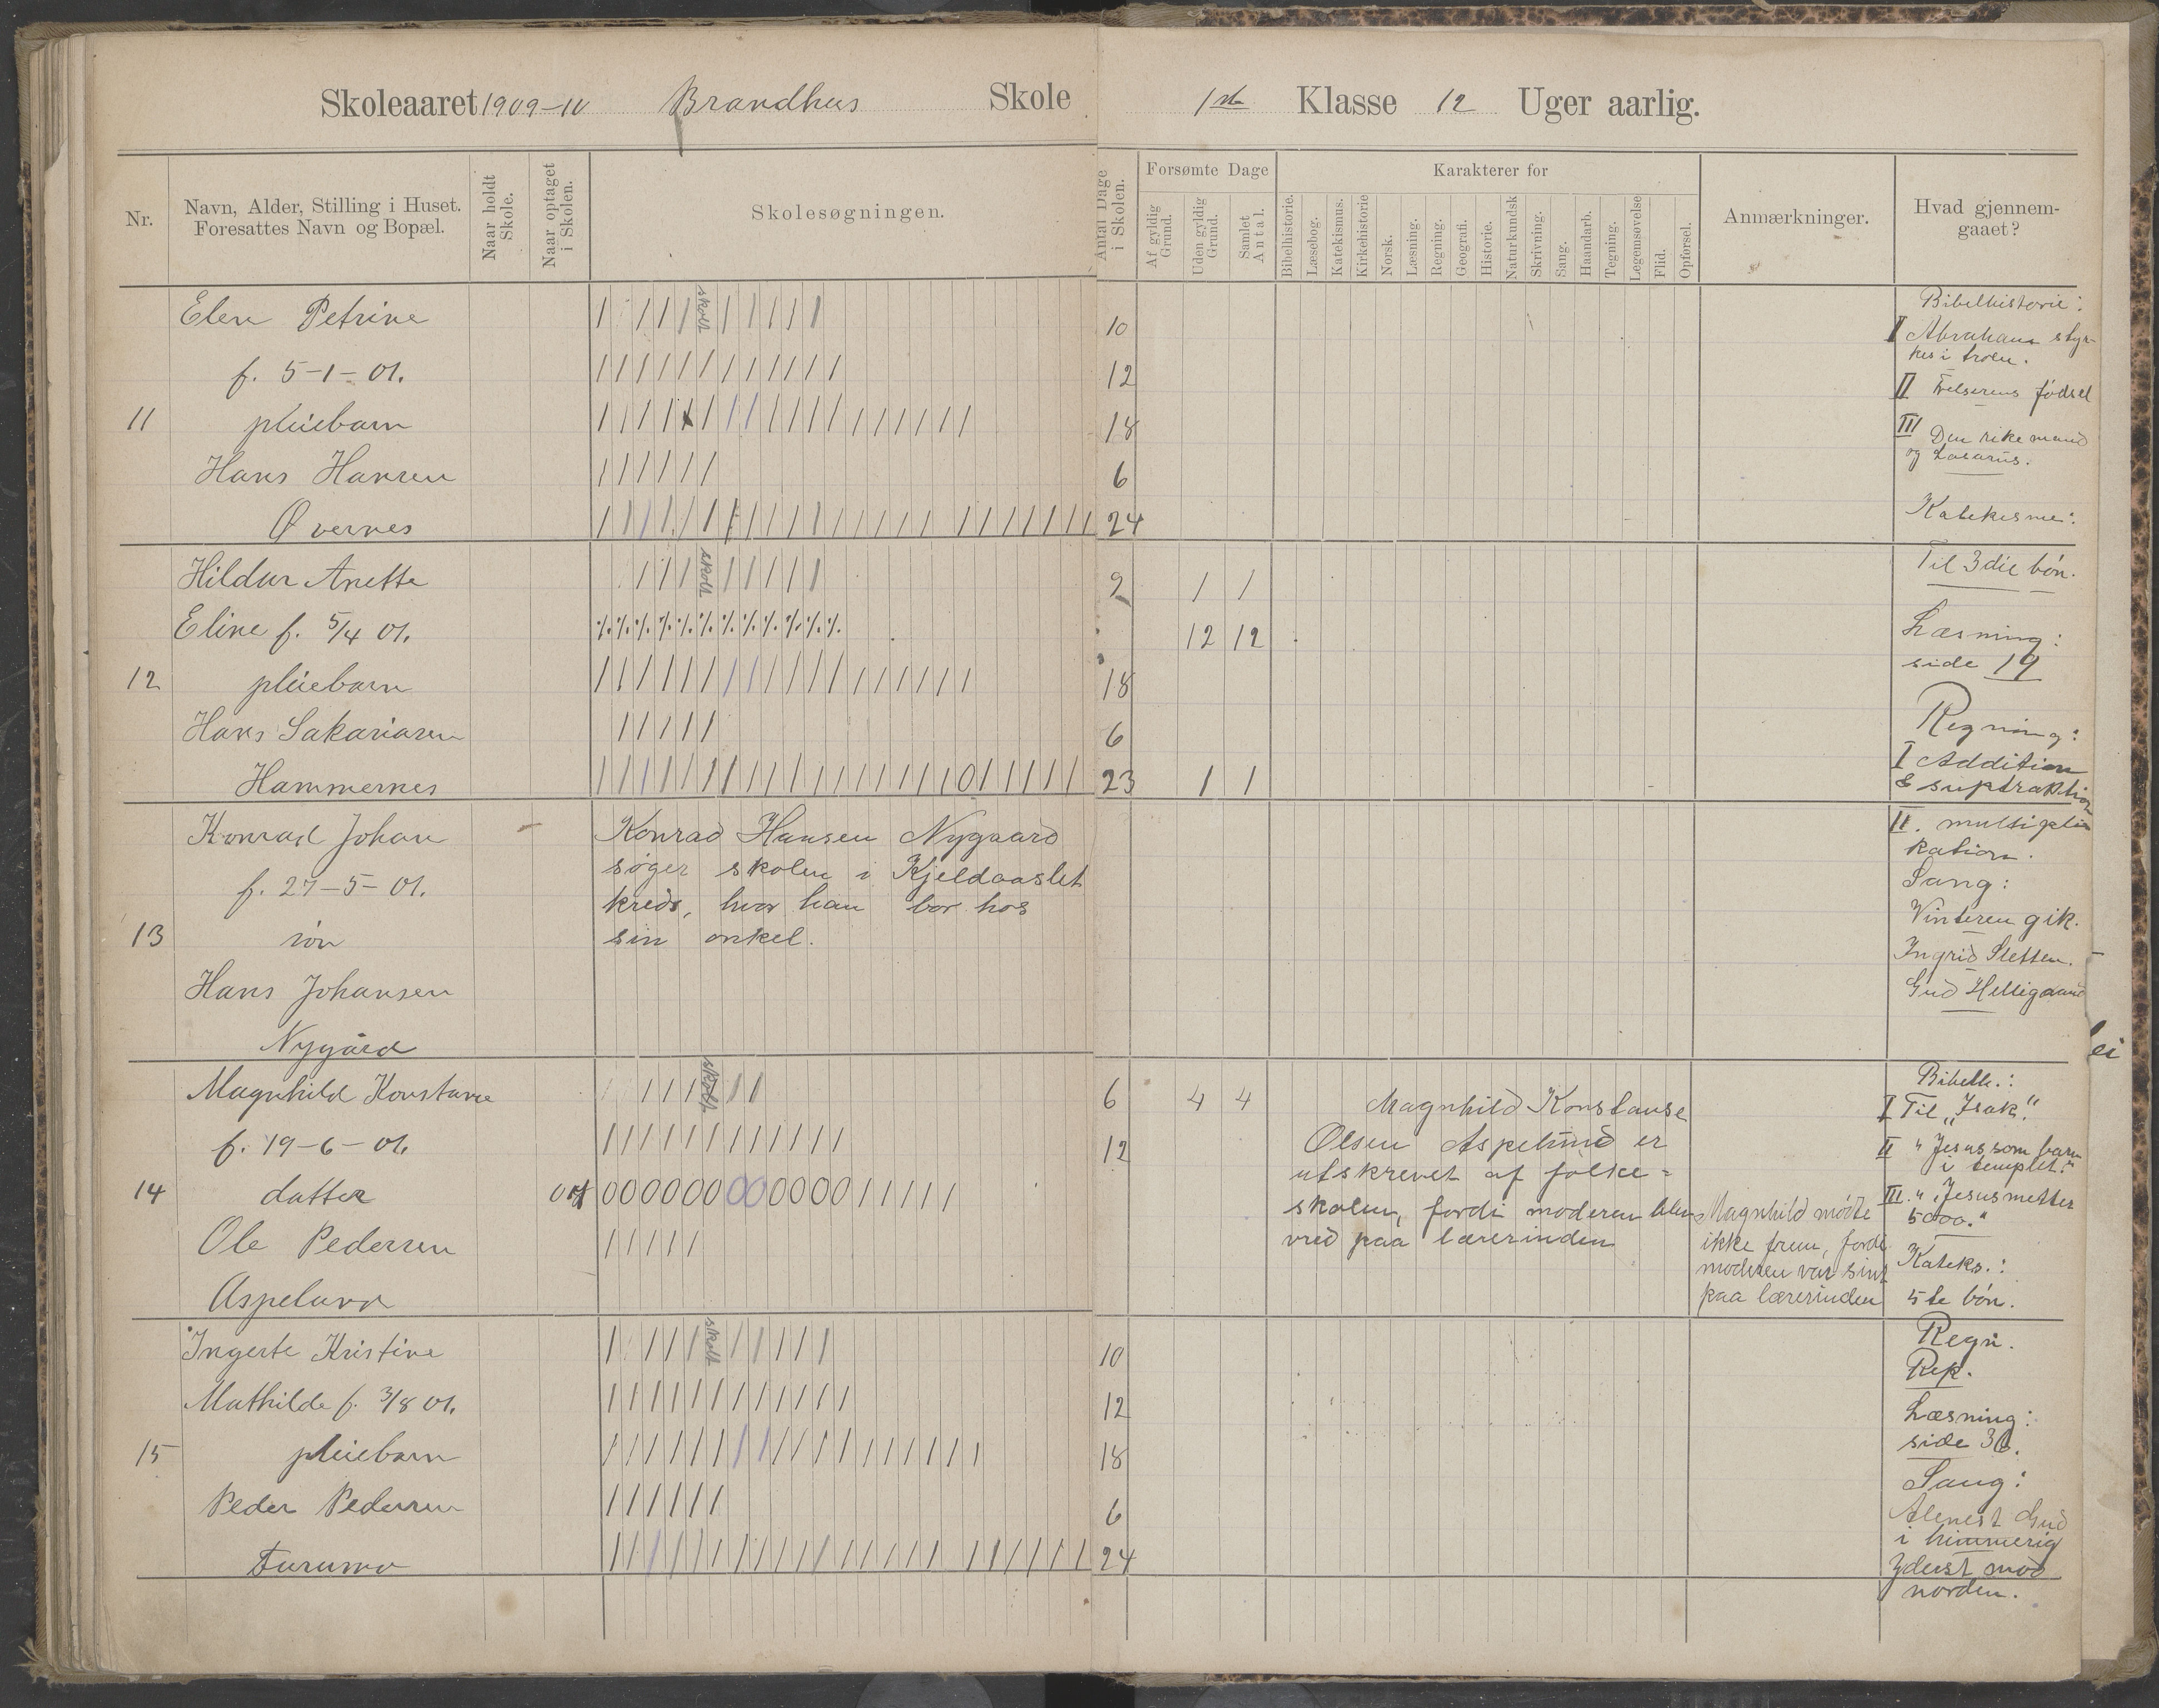 Skoleaaret 1909-10 Brandhus Skole 1ste Klasse 12 Uger aarlig.
Nr.
Navn, Alder, Stilling i Huset.
Foresattes Navn og Bopæl.
Naar holdt
Skole.
Naar optaget
i Skolen.
Skolesøgningen.
Antal Dage
i Skolen.
Forsømte Dage
Af gyldig
Grund.
Uden gyldig
Grund.
Samlet
Antal.
Karakterer for
Bibelhistorie.
Læsebog.
Katekismus.
Kirkehistorie
Norsk.
Læsning.
Regning.
Geografi.
Historie.
Naturkundsk
Skrivning.
Sang.
Haandarb.
Tegning.
Legemsøvelse
Flid.
Opførsel.
Anmærkninger.
Hvad gjennem-
gaaet?
Elen Petrine
f. 5-1-01.
11 pleiebarn
Hans Hansen
Øvernes
skolt
10
12
18
6
24
Hildur Anette
Eline f. 5/4 01.
12 pleiebarn
Hans Sakariasen
Hammernes
skolt
9 1 1
12 12
18
6
23 1 1
Konrad Johan
f. 27-5-01.
13 søn
Hans Johansen
Nygård
Konrad Hansen Nygaard
søger skolen i Kjeldaaslet
kreds, hvor han bor hos
sin onkel.
Magnhild Konstanse
f. 19-6-01.
14 datter
Ole Pedersen
Aspelund
skolt
000000000000
6 4 4
12
Magnhild Konstanse
Olsen Aspelund er
utskrevet af folke=
skolen, fordi moderen blev
vred paa lærerinden
Magnhild mødte
ikke frem, fordi
moderen var sint
paa lærerinden
Ingerte Kristine
Mathilde f. 3/8 01.
15 pleiebarn
Peder Pedersen
Furumo
skolt
10
12
18
6
24
Bibelhistorie:
I Abraham styr-
kes i troen.
II Frelserens fødsel
III Den rike mand
og Lasarus.
Katekisme:
Til 3die bøn.
Læsning:
side 19
Regning:
I Addition
& suptraktion
II. multipli
kation.
Sang:
Vinteren gik.
Ingrid Sletten.
Gud Helligaand
ei
Bibelh.:
I Til "Isak".
II " Jesus som barn
i templet."
III. " "Jesus metter
5000."
Kateks.:
5te bøn.
Regn.
Rep.
Læsning:
side 36.
Sang:
Alenest Gud
i himmerig
Yderst mod
norden.